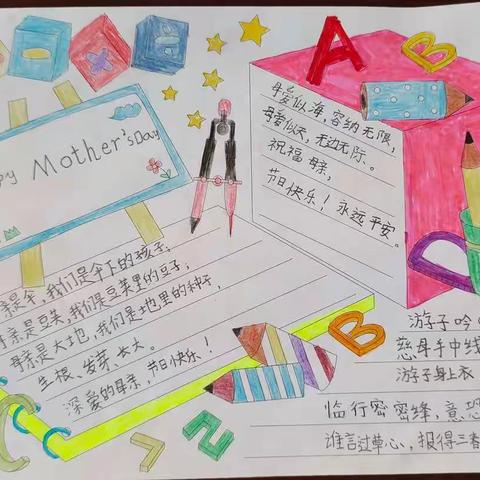 py Mother's Day
A
B
母爱似海,容纳无限,
母爱似天,无边无际。
祝福母亲,
节日快乐!永远平安。
亲是伞,我们是伞下的孩子;
母亲是豆荚,我们是豆荚里的豆子;
母亲是大地,我们是地里的种子,
生根、发芽、长大。
深爱的母亲,节日快乐!
D
B
游子吟
慈母手中线
游子身上衣
临行密密缝,意恐
谁言过草心,报得三春
7
2